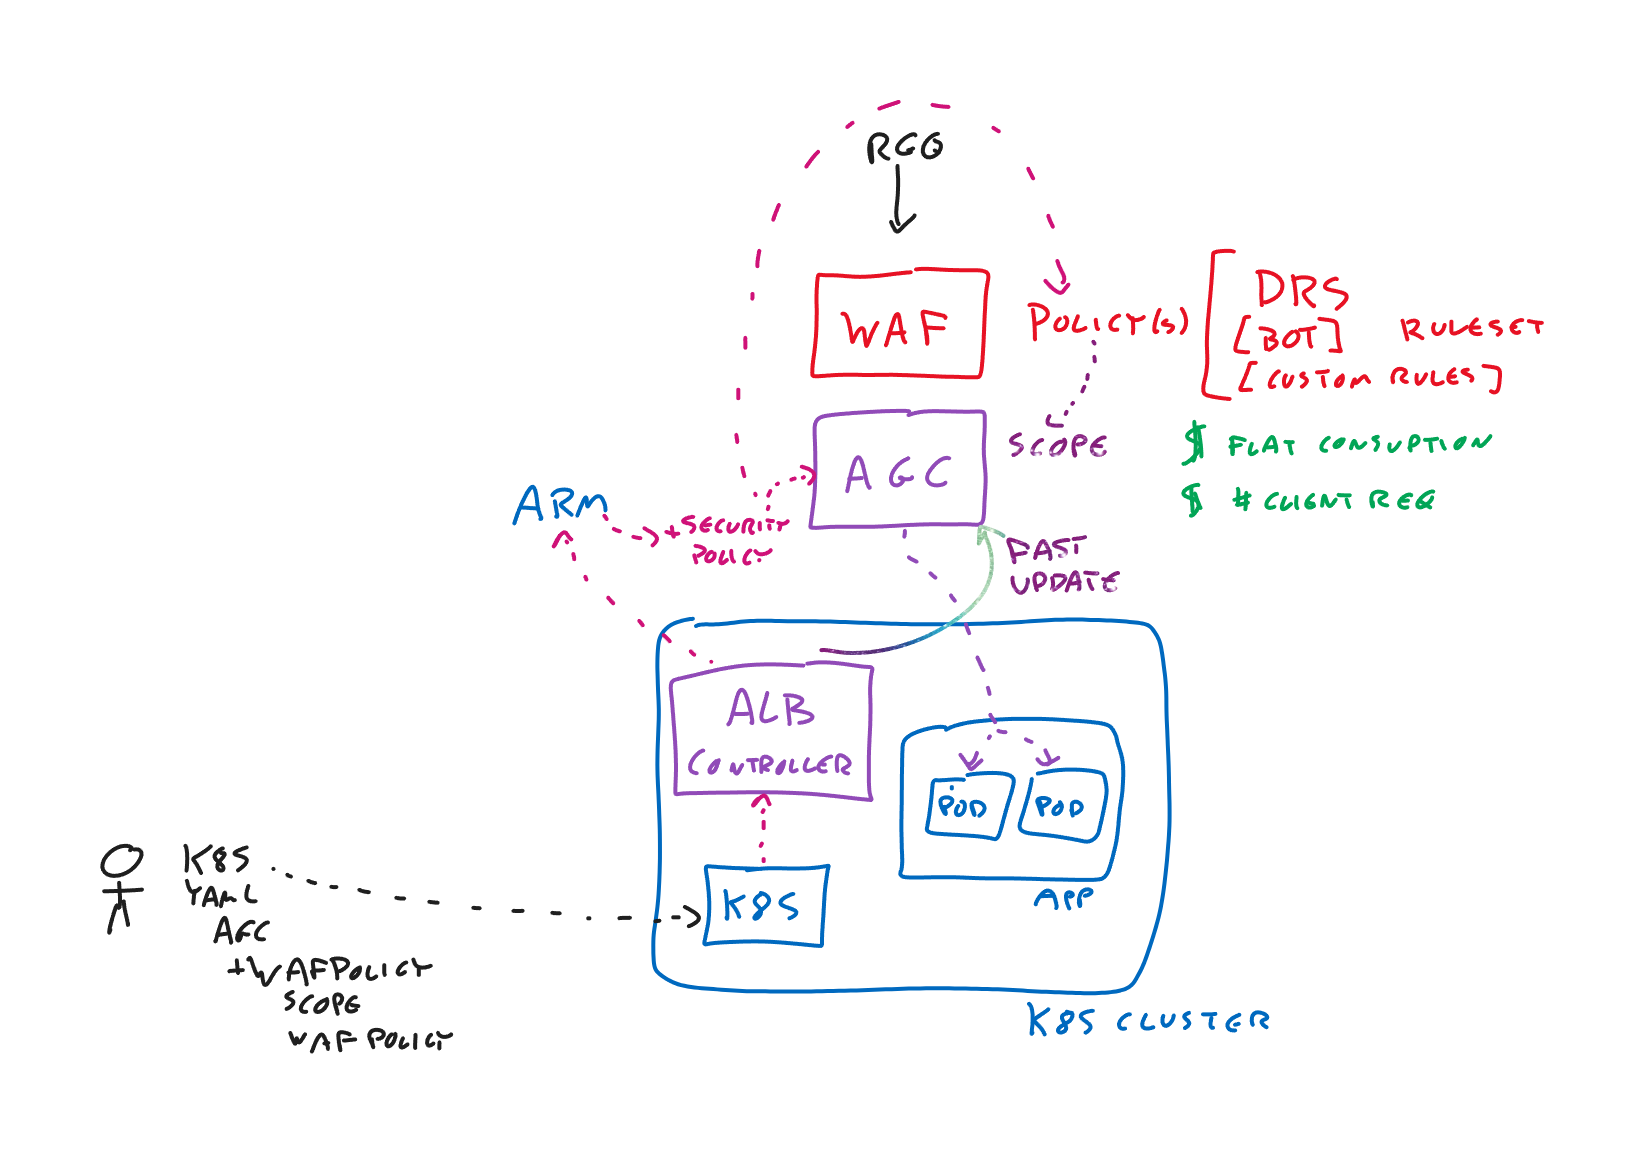 REQ
WAF
POLICY(S)
DRS
[BOT]
RULESET
[CUSTOM RULES]
AGC
SCOPE
$ FLAT CONSUPTION
$ # CLIENT REQ
ARM
+SECURITY
POLICY
FAST
UPDATE
ALB
CONTROLLER
POD
POD
APP
K8S
K8S CLUSTER
K8S
YAML
AGC
+WAFPOLICY
SCOPE
WAF POLICY